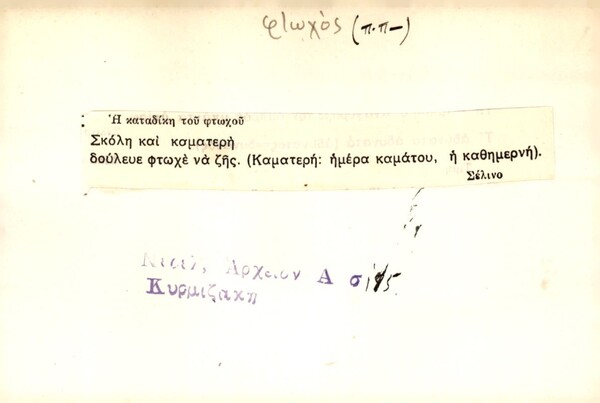 φτωχὸς (π.π—)
Ἡ καταδίκη τοῦ φτωχοῦ
Σκόλη καὶ καματερὴ
δούλευε φτωχὲ νὰ ζῆς. (Καματερή: ἡμέρα καμάτου, ἡ καθημερνή).
Σέλινο
Ἀρχεῖον Α σ.
Κυρμιζακη